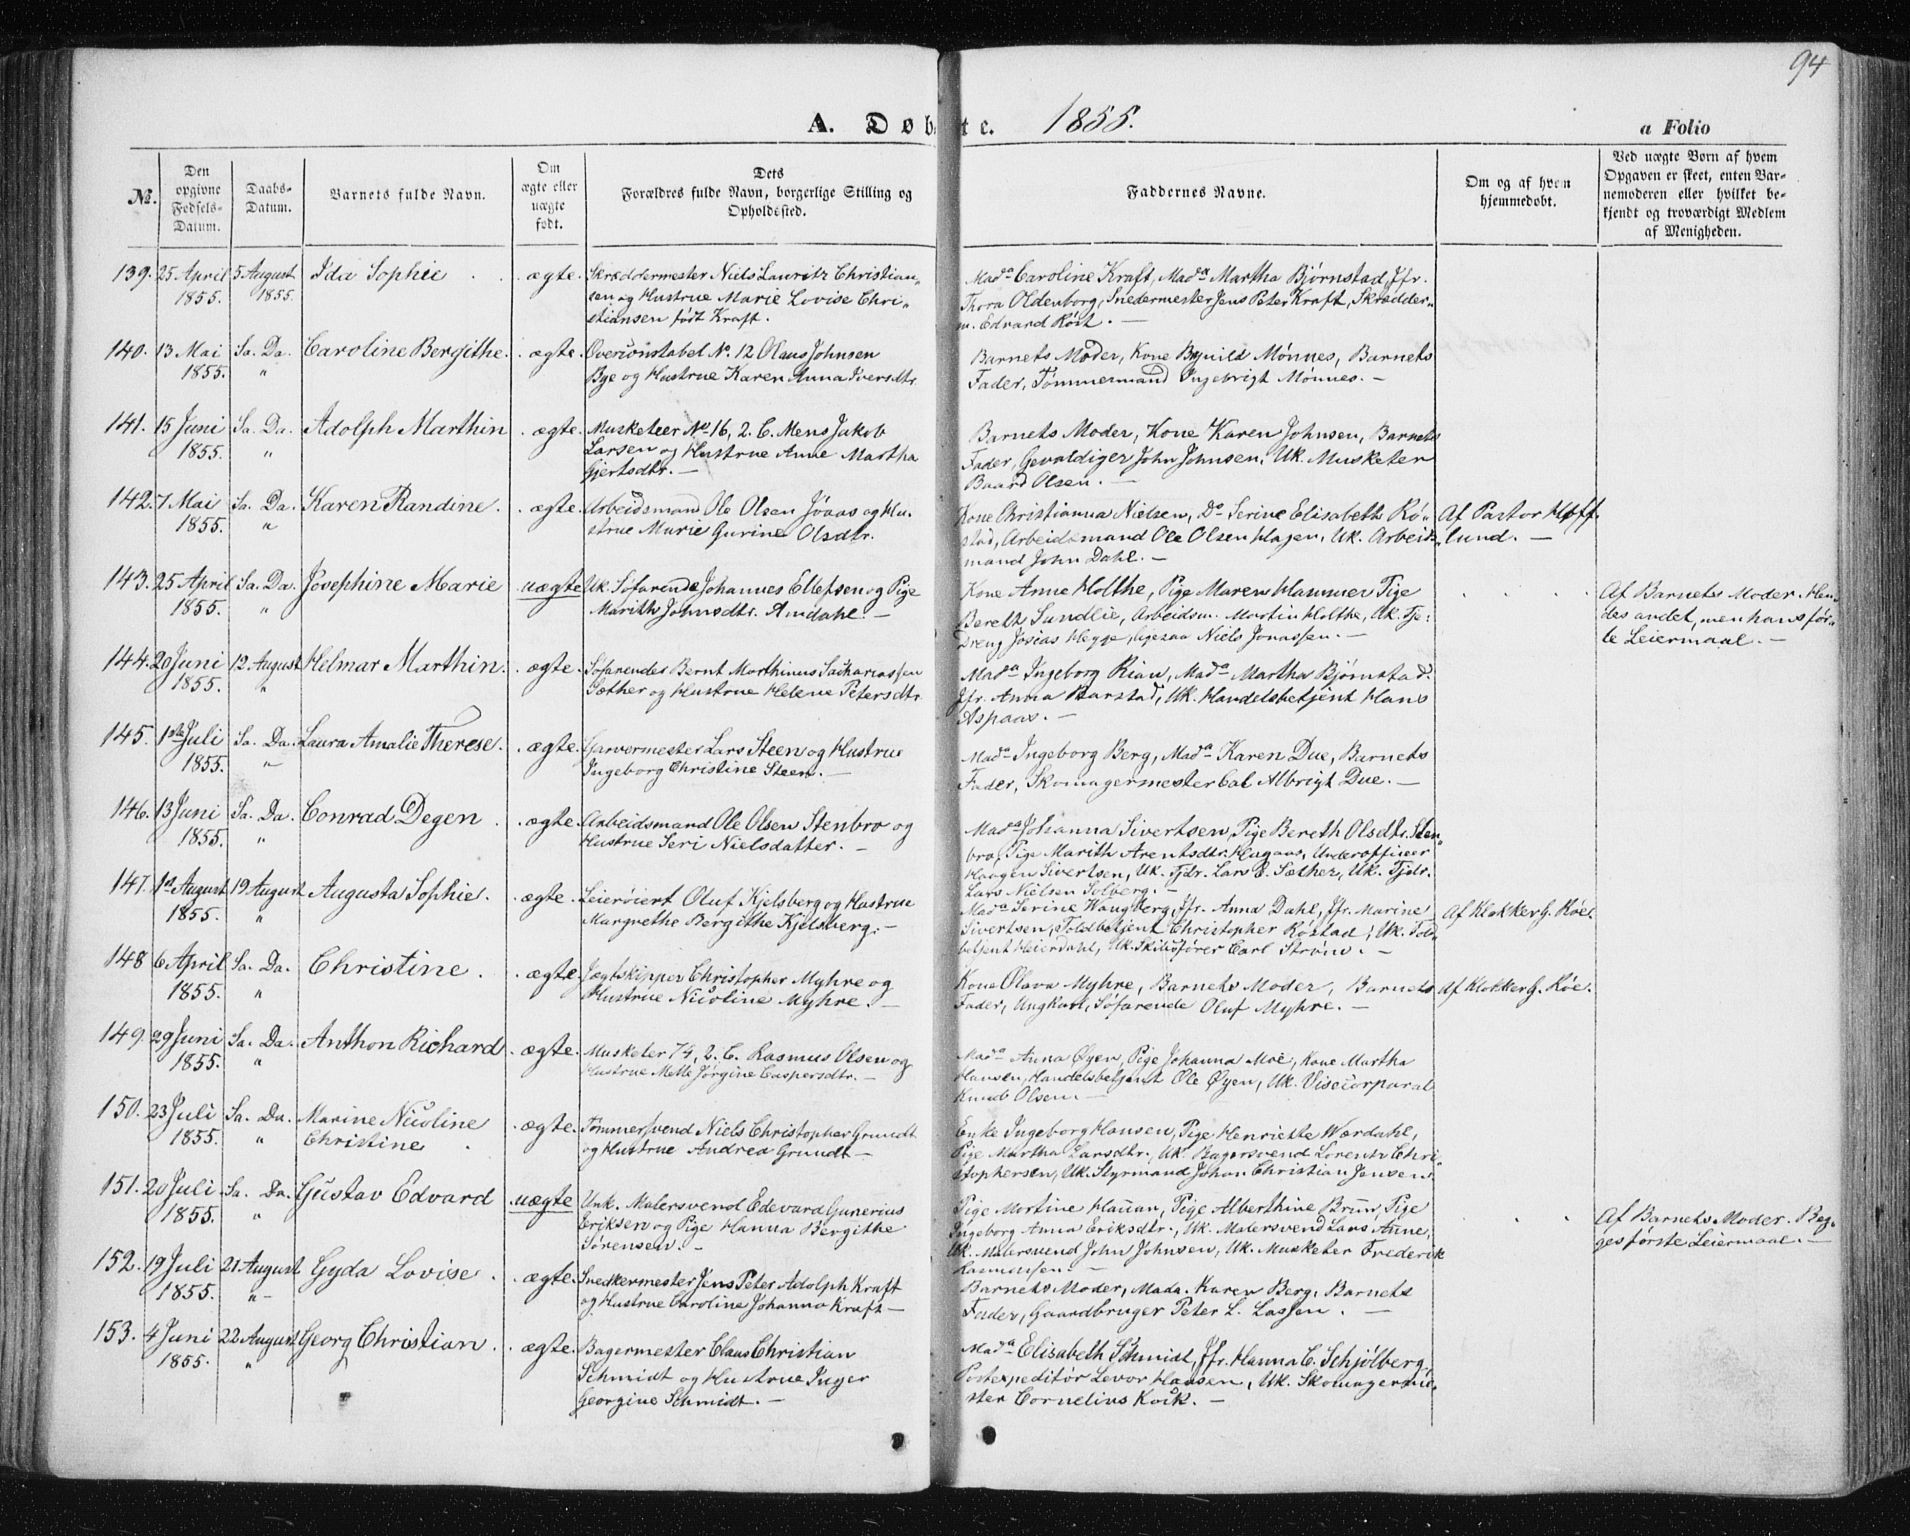 94
A. Døbte. 1855. a Folio
No.
Den opgivne Fødsels-Datum.
Daabs-Datum.
Barnets fulde Navn.
Om ægte eller uægte født.
Dets Forældres fulde Navn, borgerlige Stilling og Opholdssted.
Faddernes Navne.
Om og af hvem hjemmedøbt.
Ved uægte Børn af hvem Opgaven er skeet, enten Barnemoderen eller hvilket bekjendt og troværdigt Medlem af Menigheden.
139. 25 April 1855. 5 August 1855. Ida Sophie . ægte.
Skræddermester Niels Lauritz Christian„
sen og Hustrue Marie Lovise Chri„
stiansen født Kraft.
Mada Caroline Kraft, Mada Martha Bjørnstad, Jfr.
Thora Oldenborg, Snedkermester Jens Peter Kraft, Skrædder„
m. Edvard Röst. —
140. 13 Mai 1855. Sa. Da. „ Caroline Bergithe. . ægte.
Overconstabel No. 12 Olaus Johnsen
Bye og Hustrue Karen Anna Iversdtr.
Barnets Moder, Kone Brynild Mønnes, Barnets
Fader, Tømmermand Ingebrigt Mønnes. —
141. 15 Juni 1855. Sa. Da. „ Adolph Marthin . ægte.
Musketeer No 16, 2. C. Mens Jakob
Larsen og Hustrue Anne Martha
Gjertsdtr. —
Barnets Moder, Kone Karen Johnsen, Barnets
Fader, Gevaldiger John Johnsen, Uk. Musketer
Baard Olsen. —
142. 7 Mai 1855. Sa. Da. „ Karen Randine. . ægte.
Arbeidsmand Ole Olsen Jöaas og Hu„
strue Marie Gurine Olsdtr.
Kone Christianna Nielsen, Do Serine Elisabeth Rö„
stad, Arbeidsmand Ole Olsen Hagen, Uk. Arbeids„
mand John Dahl. —
Af Pastor Höff„
lund. —
143. 25 April 1855. Sa. Da. „ Josephine Marie uægte
Uk. Söfarende Johannes Ellefsen og Pige
Marith Johnsdtr. Amdahl. —
Kone Anne Holthe, Pige Maren Hammer Pige
Bereth Sundlie, Arbeidsm. Martin Holthe, Uk. Tje„
Dreng Josias Hegge, Niels Jonassen. —
Af Barnets Moder. Hen„
des andet, men hans för„
te Leiermaal. —
144. 20 Juni 1855. 12 August „ Helmar Marthin. . ægte.
Söfarendes Bernt Marthinus Sachariassen
Sæther og Hustrue Helene Petersdtr.
Mada Ingeborg Rian, Mada Martha Bjørnstad.
Jfr. Anna Harstad, Uk. Handelsbetjent Hans
Aspaas. —
145. 1ste Juli 1855. Sa. Da. „ Laura Amalie Therese. . ægte.
Garvermester Lars Steen og Hustrue
Ingeborg Christine Steen. —
Mada Ingeborg Berg, Mada Karen Due, Barnets
Fader, Skomagermester Cal Albrigt Due. —
146. 13 Juni 1855. Sa. Da. „ Conrad Degen . . ægte.
Arbeidsmand Ole Olsen Stenbro og
Hustrue Seri Nielsdatter. —
Mada Johanna Sivertsen, Pige Bereth Olsdtr. Sten„
bro, Pige Marith Arentsdtr. Hugaas, Underofficeer
Haagen Sivertsen, Uk. Tjdr. Lars E. Sæther, Uk. Tjdr.
Lars Nielsen Solberg. —
147. 1st August 1855. 19 August „ Augusta Sophie. . ægte.
Leierøiert Oluf Kjelsberg og Hustrue
Margrethe Bergithe Kjelsberg. —
Mada Serine Wangberg, Jfr. Anna Dahl, Jfr. Marine
Sivertsen, Toldbetjent Christopher Röstad, Uk. Told„
betjent Heierdahl, Uk. Skibsfører Carl Ström. —
Af Klokker G. Röe.
148 6 April 1855. Sa. Da. „ Christine . . ægte
Jægtskipper Christopher Myhre og
Hustrue Nicoline Myhre. —
Kone Olava Myhre, Barnets Moder, Barnets
Fader, Ungkarl, Söfarende Oluf Myhre. —
Af Klokker G. Röe.
149. 29 Juni 1855. Sa. Da. „ Anthon Richard . ægte.
Musketer 74, 2. C. Rasmus Olsen og
Hustrue Mette Jörgine Caspersdtr. —
Mada Anna Øyen, Pige Johanna Moe, Kone Martha
Hansen, Handelsbetjent Ole Øyen, Uk. Visecorporal
Knud Olsen. —
150. 23 Juli 1855. Sa. Da. „ Marine Nicoline
Christine . . ægte.
Tømmersvend Niels Christopher Grundt
og Hustrue Andrea Grundt —
Enke Ingeborg Hansen, Pige Henriette Wærdahl,
Pige Martha Larsdtr., Uk. Bagersvend Lorents Chri„
stophersen, Uk. Styrmand Johan Christian Jensen.
151. 20 Juli 1855. Sa. Da. „ Gustav Edvard uægte
Unk. Malersvend Edevard Gunerius
Eriksen og Pige Hanna Bergithe
Sörensen. —
Pige Martine Hauan, Pige Alberthine Bruun, Pige
Ingeborg Anna Eriksdtr., Uk. Malersvend Lars Anne,
Uk. Malersvend John Johnsen, Uk. Musketer Frederik
Rasmussen. —
Af Barnets Moder. Beg„
ges förste Leiermaal. —
152. 19 Juli 1855. 21 August „ Gyda Lovise . . ægte.
Snedkermester Jens Peter Adolph Kraft
og Hustrue Caroline Johanna Kraft —
Barnets Moder, Mada. Karen Berg, Barnets
Fader, Gaardbruger Peter L. Lassen. —
153. 4 Juni 1855. 22 August „ Georg Christian . . ægte.
Bagermester Claus Christian
Schmidt og Hustrue Inger
Georgine Schmidt. —
Mada Elisabeth Schmidt, Jfr. Hanna C. Schjølberg,
Postexpeditör Levor Hansen, Uk. Skomagerme„
ster Cornelius Koik. —